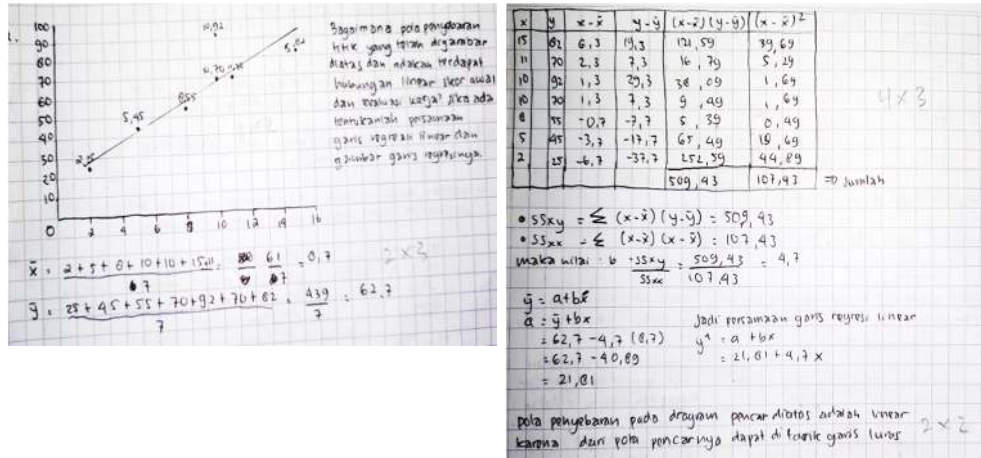 100
90
80
70
60
50
40
30
20
10
0 2 4 6 8 10 12 14 16
5,45
855
Bagaimana pola penyebaran
titik yang telah digambar
diatas dan adakah terdapat
hubungan linear skor awal
dan evaluasi kerja? Jika ada
tentukanlah persamaan
garis regresi linear dan
gambar garis regresinya.
x̄ = 2+5+8+10+10+15+11 / 7 = 61 / 7 = 8,7
ȳ = 25+45+55+70+92+70+82 / 7 = 439 / 7 = 62,7
2×3
x y x-x̄ y-ȳ (x-x̄)(y-ȳ) (x-x̄)²
15 82 6,3 19,3 121,59 39,69
11 70 2,3 7,3 16,79 5,29
10 92 1,3 29,3 38,09 1,69
10 70 1,3 7,3 9,49 1,69
8 55 -0,7 -7,7 5,39 0,49
5 45 -3,7 -17,7 65,49 13,69
2 25 -6,7 -37,7 252,59 44,89
509,43 107,43 => Jumlah
4×3
• SSxy = Σ (x-x̄)(y-ȳ) = 509,43
• SSxx = Σ (x-x̄)(x-x̄) = 107,43
maka nilai : b = SSxy / SSxx = 509,43 / 107,43 = 4,7
ȳ = a+bx̄
a = ȳ+bx
= 62,7 - 4,7 (8,7)
= 62,7 - 40,89
= 21,81
Jadi persamaan garis regresi linear
y^ = a + bx
= 21,81 + 4,7 x
pola penyebaran pada diagram pencar diatas adalah linear
karena dari pola pencarnya dapat ditarik garis lurus
2×2